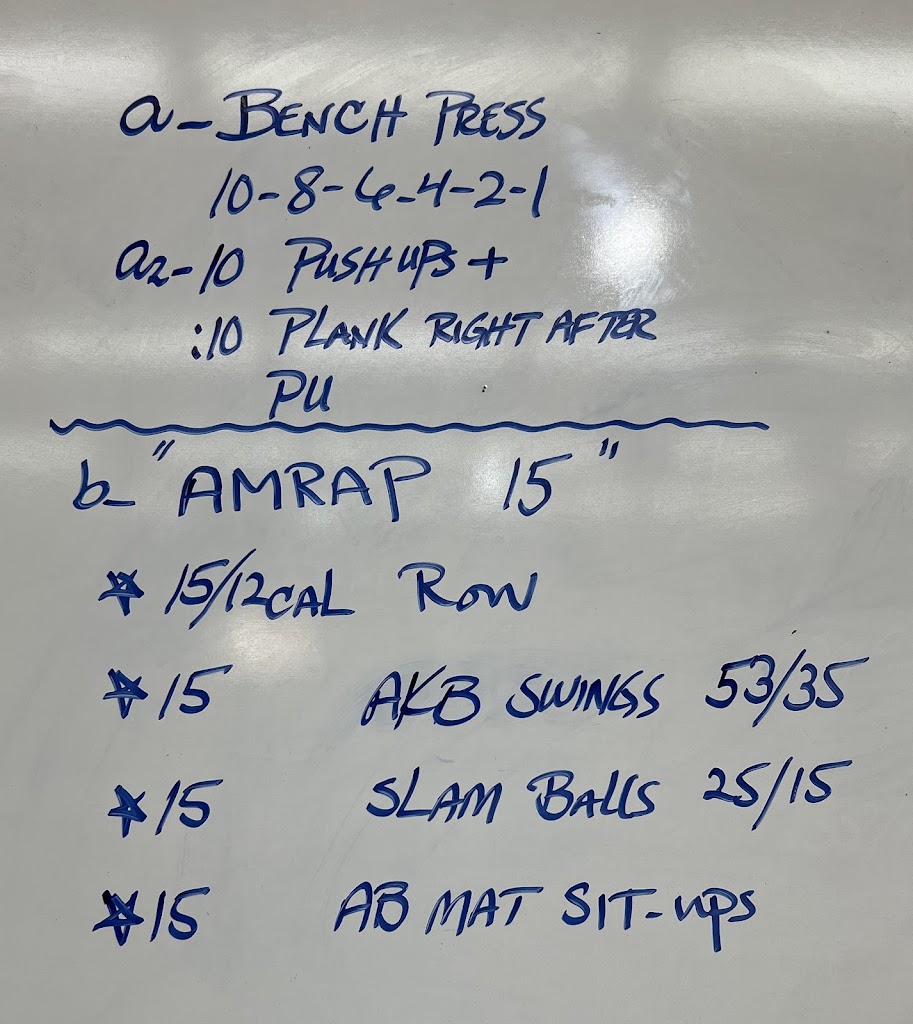 a-BENCH PRESS
10-8-6-4-2-1
a2-10 PUSH UPS +
:10 PLANK RIGHT AFTER
PU
b- "AMRAP 15"
☆ 15/12 CAL ROW
☆ 15 AKB SWINGS 53/35
☆ 15 SLAM BALLS 25/15
☆ 15 AB MAT SIT-UPS